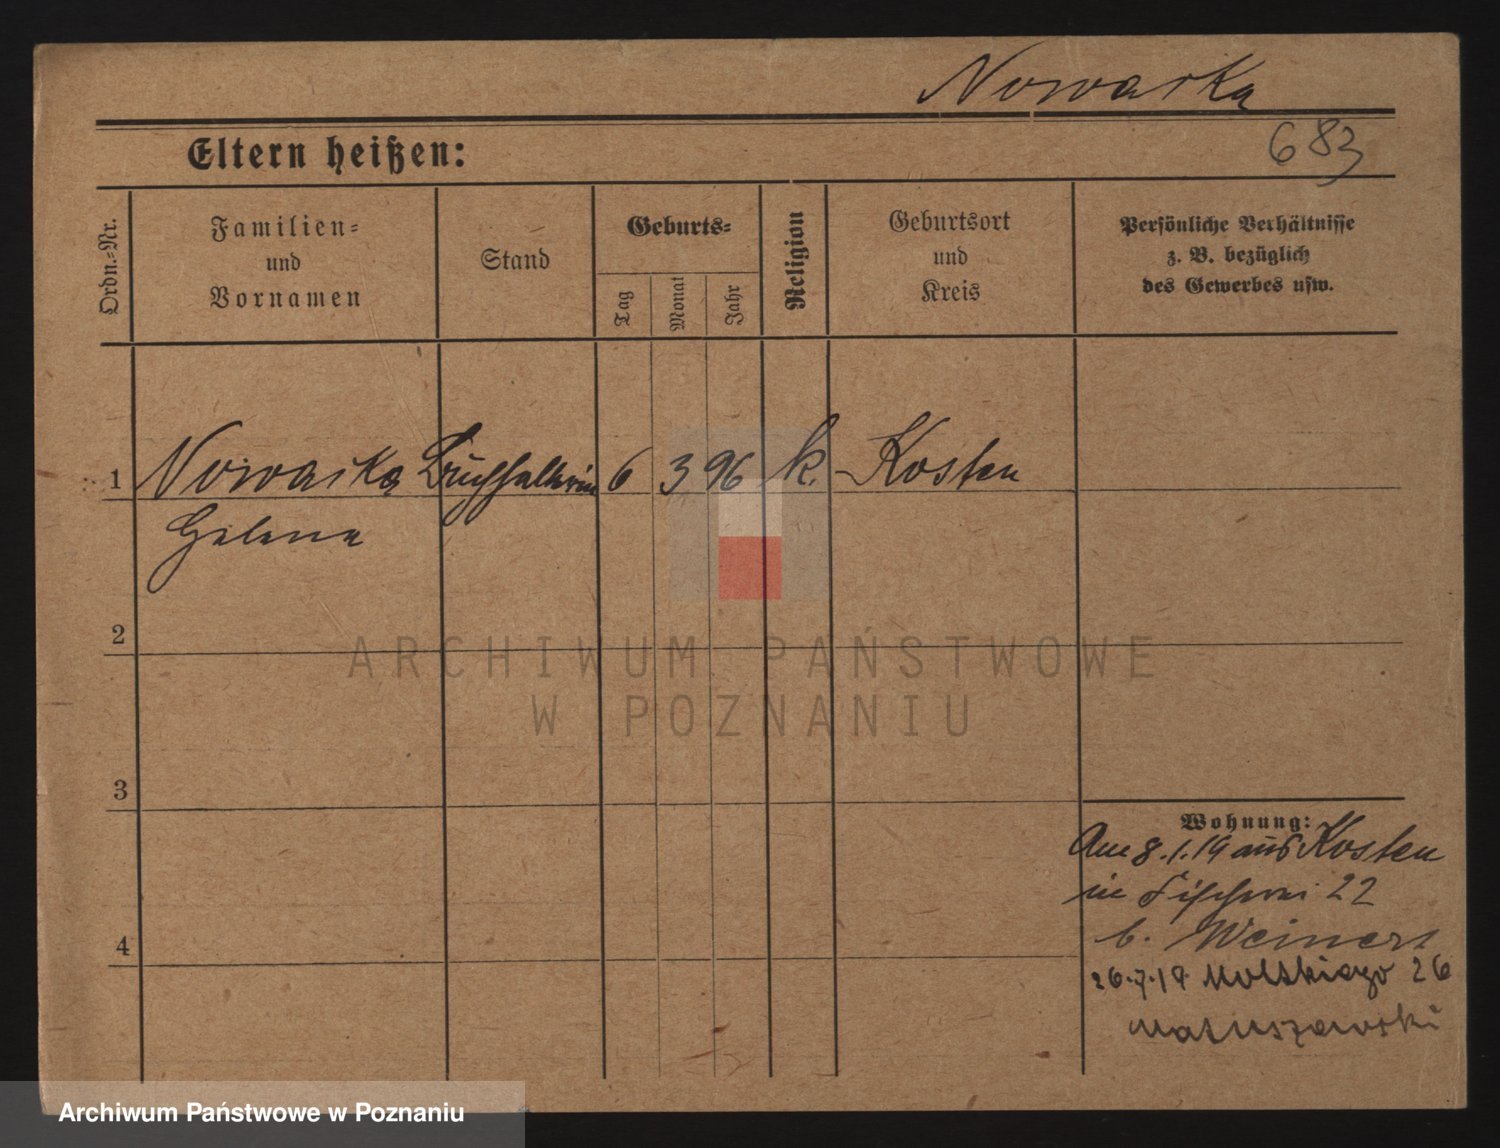 Nowacka
683
Eltern heißen:
Ordn.=Nr.
Familien=
und
Vornamen
Stand
Geburts=
Tag
Monat
Jahr
Religion
Geburtsort
und
Kreis
Persönliche Verhältnisse
z. B. bezüglich
des Gewerbes usw.
1 Nowacka Buchhalterin 6 3 96 k. Kosten
Helena
2
3
4
Wohnung:
Am 8.1.19 aus Kosten
in Fischerei 22
b. Weinert
26.7.19 Moltkiego 26
Matuszewski
ARCHIWUM PAŃSTWOWE
W POZNANIU
Archiwum Państwowe w Poznaniu